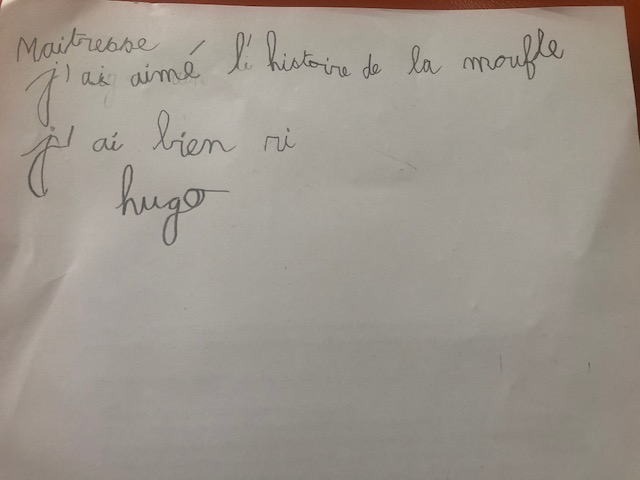 Maitresse
j'ai aimé l'histoire de la moufle
j'ai bien ri
hugo